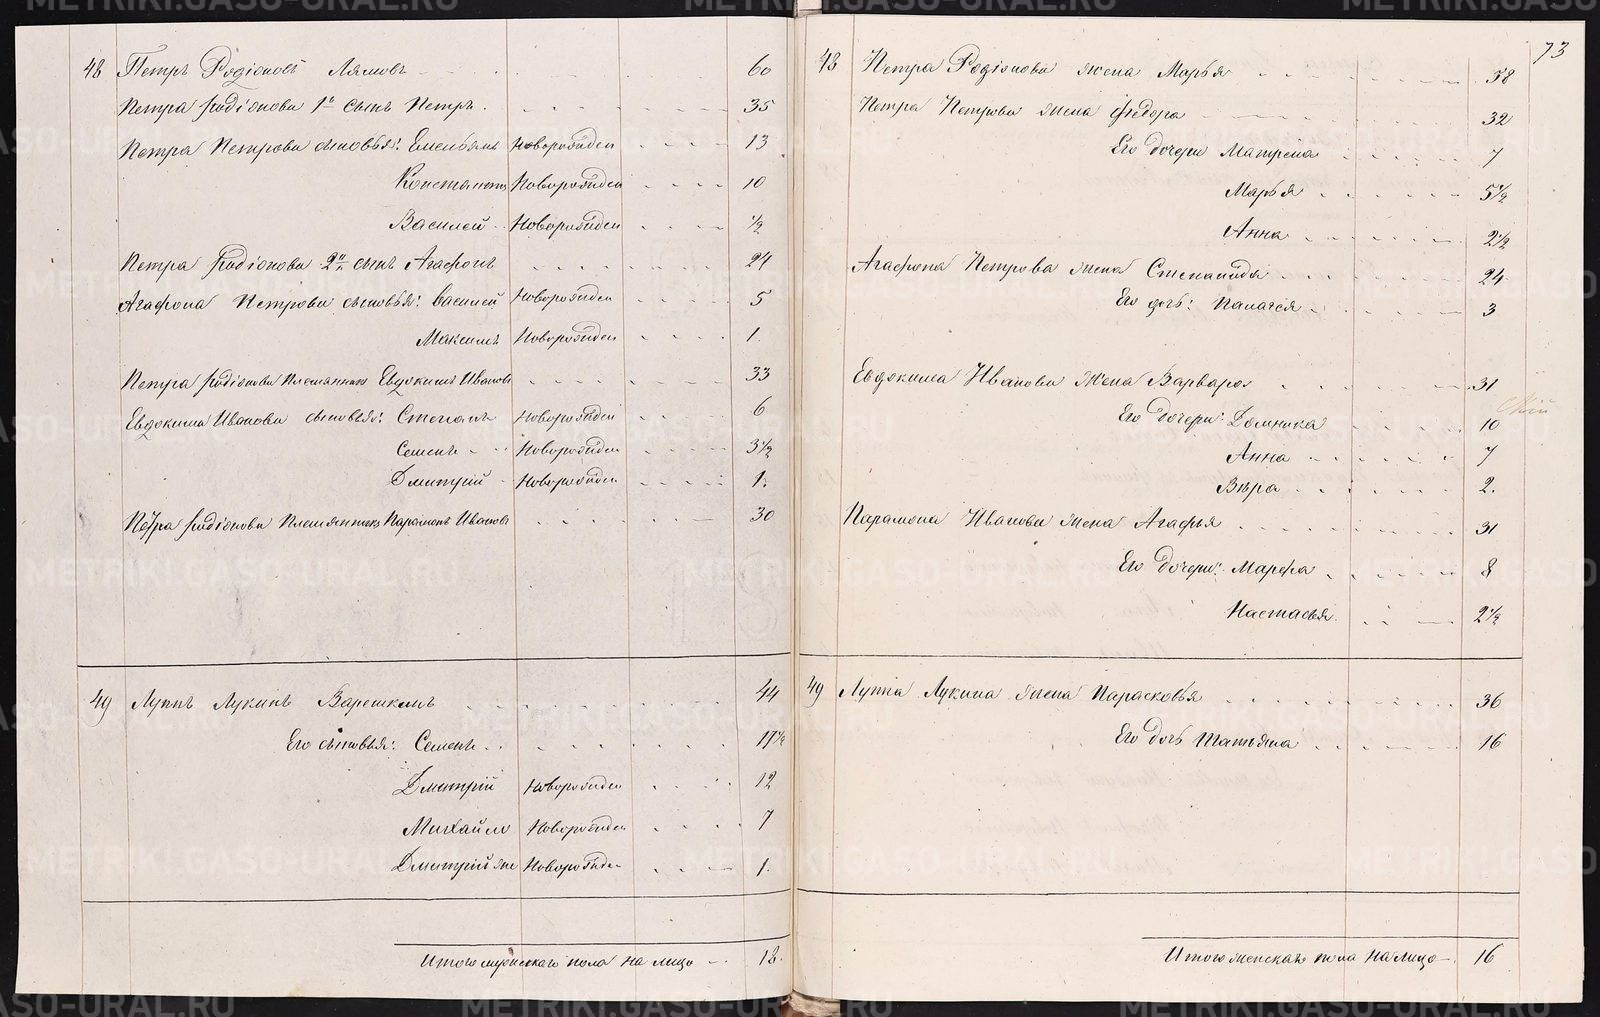 48 Петръ Родіоновъ Лямовъ 60
Петра Родіонова 1й сынъ Петръ. 35
Петра Петрова сыновья: Емельянъ Новорожден 13
Константинъ Новорожден 10
Василей Новорожден ½
Петра Родіонова 2й сынъ Агафонъ 24
Агафона Петрова сыновья: Василей Новорожден 5
Максимъ Новорожден 1.
Петра Родіонова племянникъ Евдокимъ Ивановъ 33
Евдокима Иванова сыновья: Степанъ Новорожден 6
Семенъ Новорожден 3½
Дмитрій Новорожден 1.
Петра Родіонова племянникъ Парамонъ Ивановъ 30
49 Луппъ Лукинъ Варешкинъ 44
Его сыновья: Семенъ 17½
Дмитрій Новорожден 12
Михайло Новорожден 7
Дмитрій же Новорожден 1.
Итого мужескаго пола на лицо 18.
73
48 Петра Родіонова жена Марья 58
Петра Петрова жена Федора 32
Его дочери Матрена 7
Марья 5½
Анна 2½
Агафона Петрова жена Степанида 24
Его дочь: Палагея 3
Евдокима Иванова жена Варвара 31
Его дочери: Домника 10
Анна 7
Вѣра 2.
Парамона Иванова жена Агафья 31
Его дочери: Марфа 8
Настасья 2½
49 Луппа Лукина жена Парасковья 36
Его дочь Татьяна 16
Итого женскаго пола на лицо 16
METRIKI.GASO-URAL.RU